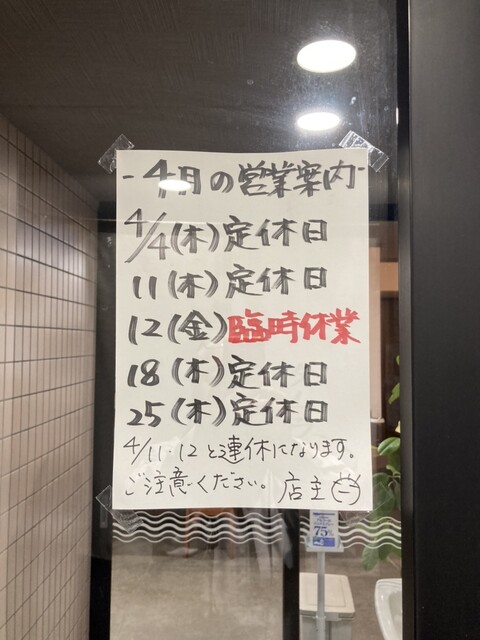 -4月の営業案内-
4/4(木)定休日
11(木)定休日
12(金)臨時休業
18(木)定休日
25(木)定休日
4/11・12と連休になります。
ご注意ください。店主
75%